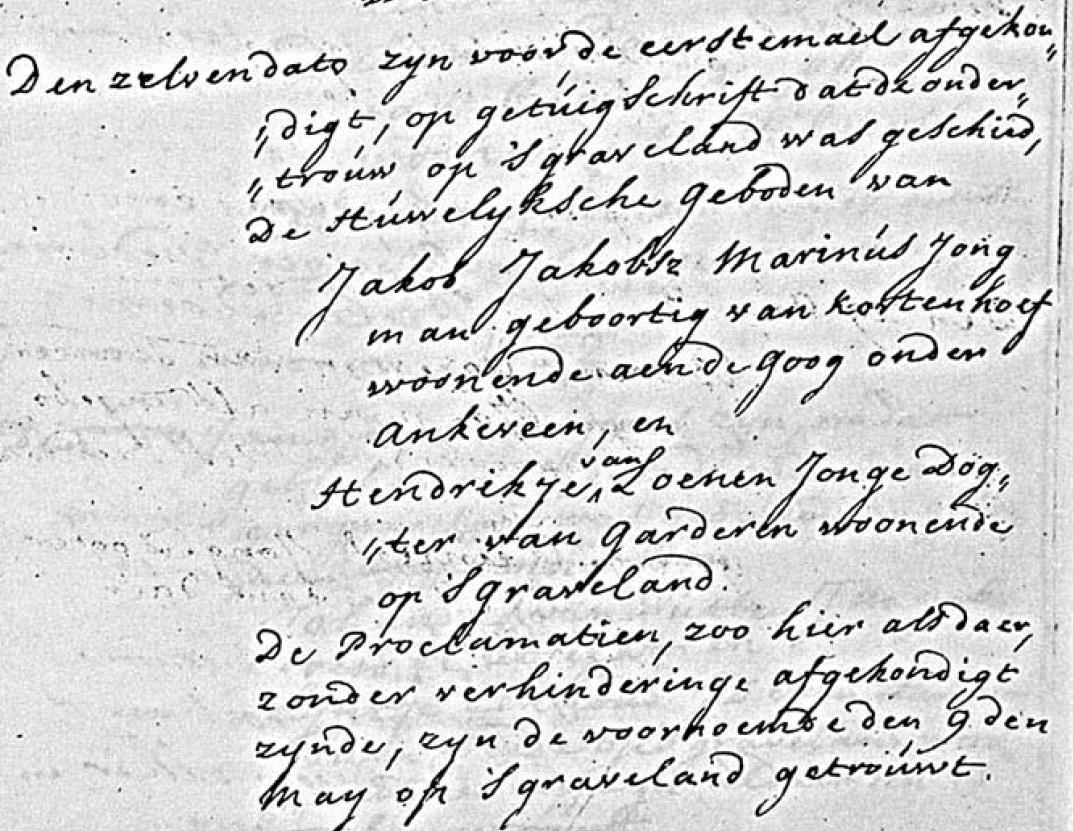 Den zelven dato zyn voor de eerstemael afgekon„
„digt, op getúigschrift dat de onder„
„troúw op 'Sgraveland was geschied,
De Húwelyksche Geboden van
Jakob Jakobsz Marinús Jong
man geboortig van Kortenhoef
woonende aen de Goog onder
Ankeveen, en
Hendrikje van Loenen Jonge Dog„
„ter van Garderen woonende
op 'Sgraveland.
De Proclamatien, zoo hier als daer,
zonder verhinderinge afgekondigt
zynde, zyn de voornoemde den 9den
May op 'Sgraveland getroúwt.